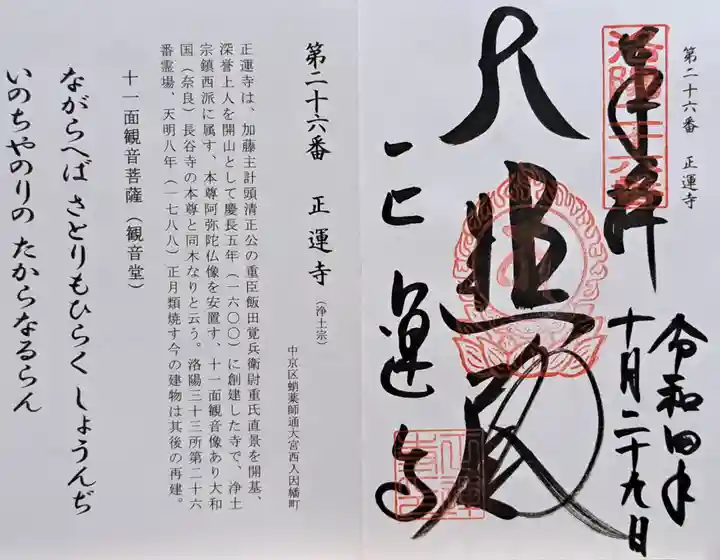 第二十六番 正運寺
奉拝
令和四年
十月二十九日
大悲殿
正運寺
第二十六番 正運寺（浄土宗）
中京区蛸薬師通大宮西入因幡町
正運寺は、加藤主計頭清正公の重臣飯田覚兵衛尉重氏直景を開基、
深誉上人を開山として慶長五年（一六〇〇）に創建した寺で、浄土
宗鎮西派に属す、本尊阿弥陀仏像を安置す、十一面観音像あり大和
国（奈良）長谷寺の本尊と同木なりと云う。洛陽三十三所第二十六
番霊場、天明八年（一七八八）正月類焼す今の建物は其後の再建。
十一面観音菩薩（観音堂）
ながらへば さとりもひらく しょうんぢ
いのちやのりの たからなるらん